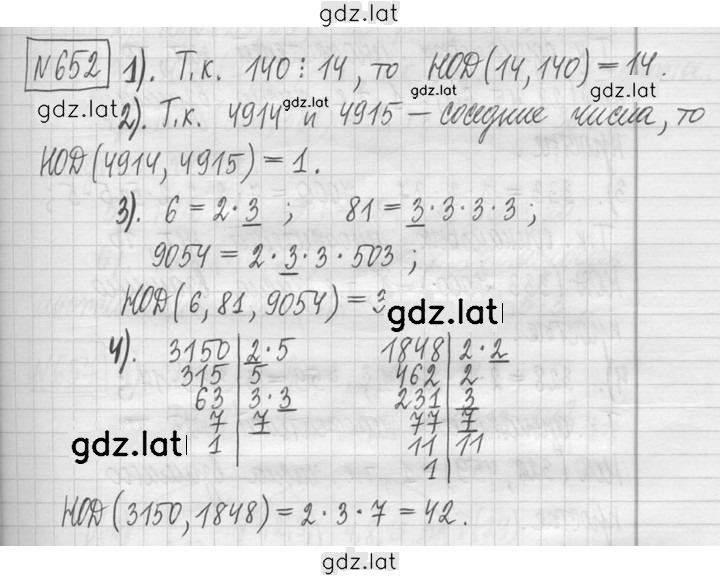 gdz.lat
№652 1). Т.к. 140 ⋮ 14, то НОД(14,140) = 14.
gdz.lat gdz.lat gdz.lat gdz.lat
2). Т.к. 4914 и 4915 – соседние числа, то
НОД(4914, 4915) = 1.
3). 6 = 2·3 ; 81 = 3·3·3·3 ;
9054 = 2·3·3·503 ;
НОД(6, 81, 9054) = 3
gdz.lat
4). 3150 | 2·5 1848 | 2·2
315 | 5 462 | 2
63 | 3·3 231 | 3
7 | 7 77 | 7
1 | 11 | 11
gdz.lat
1 |
НОД(3150, 1848) = 2·3·7 = 42.
gdz.lat